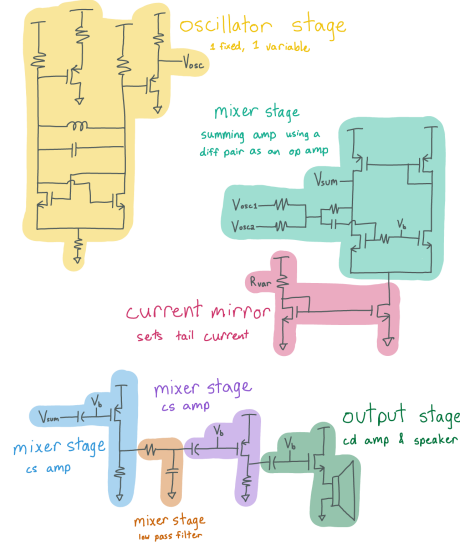 oscillator stage
1 fixed, 1 variable
Vosc
mixer stage
summing amp using a
diff pair as an op amp
Vsum
Vosc1
Vosc2
Vb
Rvar
current mirror
sets tail current
mixer stage
cs amp
Vb
Vsum
mixer stage
cs amp
Vb
output stage
cd amp & speaker
Vb
mixer stage
low pass filter